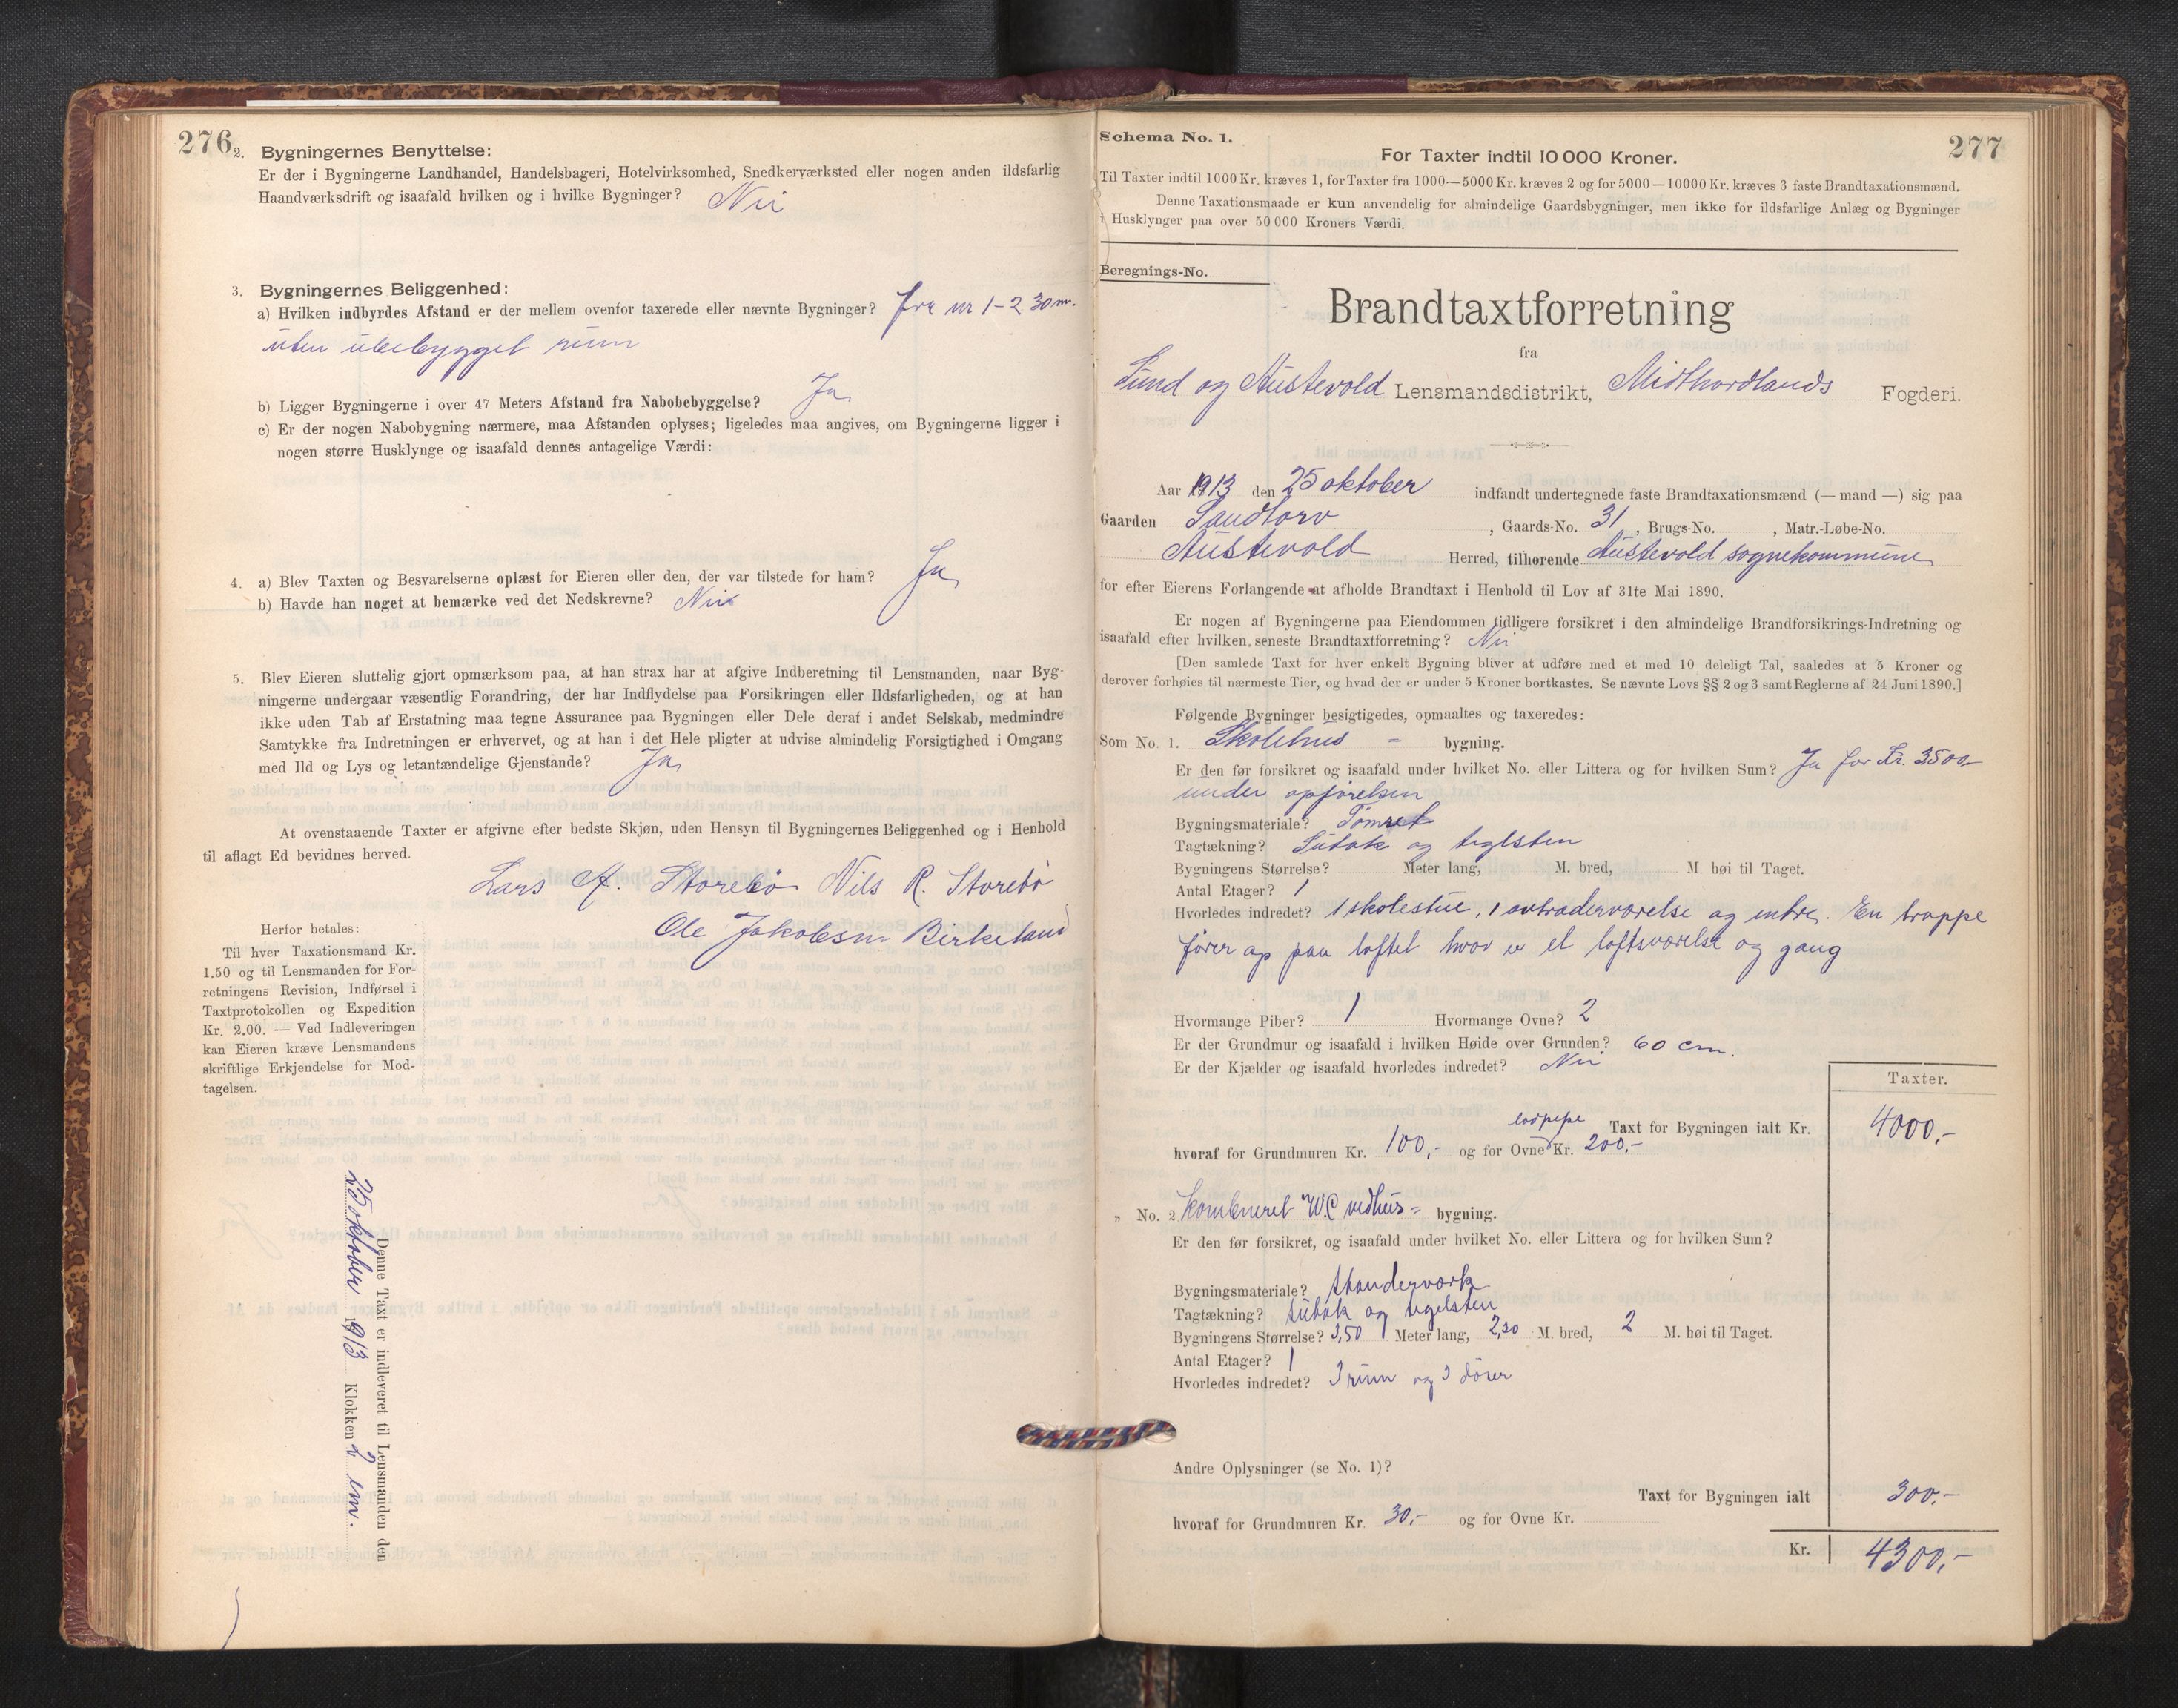 276
2. Bygningernes Benyttelse:
Er der i Bygningerne Landhandel, Handelsbageri, Hotelvirksomhed, Snedkerværksted eller nogen anden ildsfarlig
Haandværksdrift og isaafald hvilken og i hvilke Bygninger? Nei
3. Bygningernes Beliggenhed:
a) Hvilken indbyrdes Afstand er der mellem ovenfor taxerede eller nævnte Bygninger? fra nr 1-2 30 m.
uten ubebygget rum
b) Ligger Bygningerne i over 47 Meters Afstand fra Nabobebyggelse? Ja
c) Er der nogen Nabobygning nærmere, maa Afstanden oplyses; ligeledes maa angives, om Bygningerne ligger i
nogen større Husklynge og isaafald dennes antagelige Værdi:
4. a) Blev Taxten og Besvarelserne oplæst for Eieren eller den, der var tilstede for ham? Ja
b) Havde han noget at bemærke ved det Nedskrevne? Nei
5. Blev Eieren sluttelig gjort opmærksom paa, at han strax har at afgive Indberetning til Lensmanden, naar Byg-
ningerne undergaar væsentlig Forandring, der har Indflydelse paa Forsikringen eller Ildsfarligheden, og at han
ikke uden Tab af Erstatning maa tegne Assurance paa Bygningen eller Dele deraf i andet Selskab, medmindre
Samtykke fra Indretningen er erhvervet, og at han i det Hele pligter at udvise almindelig Forsigtighed i Omgang
med Ild og Lys og letantændelige Gjenstande? Ja
At ovenstaaende Taxter er afgivne efter bedste Skjøn, uden Hensyn til Bygningernes Beliggenhed og i Henhold
til aflagt Ed bevidnes herved.
Lars A. Storebø Nils R. Storebø
Ole Jakobsen Birkeland
Herfor betales:
Til hver Taxationsmand Kr.
1.50 og til Lensmanden for For-
retningens Revision, Indførsel i
Taxtprotokollen og Expedition
Kr. 2.00. — Ved Indleveringen
kan Eieren kræve Lensmandens
skriftlige Erkjendelse for Mod-
tagelsen.
Denne Taxt er indleveret til Lensmanden den
25 oktober 1913 Klokken 2 em.
Schema No. 1.
277
For Taxter indtil 10 000 Kroner.
Til Taxter indtil 1000 Kr. kræves 1, for Taxter fra 1000—5000 Kr. kræves 2 og for 5000—10000 Kr. kræves 3 faste Brandtaxationsmænd.
Denne Taxationsmaade er kun anvendelig for almindelige Gaardsbygninger, men ikke for ildsfarlige Anlæg og Bygninger
i Husklynger paa over 50 000 Kroners Værdi.
Beregnings-No.
Brandtaxtforretning
fra
Sund og Austevold Lensmandsdistrikt, Midthordlands Fogderi.
Aar 1913 den 25 oktober indfandt undertegnede faste Brandtaxationsmænd (— mand —) sig paa
Gaarden Sandtorv , Gaards-No. 31 , Brugs-No. , Matr.-Løbe-No.
Austevold Herred, tilhørende Austevold sognekommune
for efter Eierens Forlangende at afholde Brandtaxt i Henhold til Lov af 31te Mai 1890.
Er nogen af Bygningerne paa Eiendommen tidligere forsikret i den almindelige Brandforsikrings-Indretning og
isaafald efter hvilken seneste Brandtaxtforretning? Nei
[Den samlede Taxt for hver enkelt Bygning bliver at udføre med et med 10 deleligt Tal, saaledes at 5 Kroner og
derover forhøies til nærmeste Tier, og hvad der er under 5 Kroner bortkastes. Se nævnte Lovs §§ 2 og 3 samt Reglerne af 24 Juni 1890.]
Følgende Bygninger besigtigedes, opmaaltes og taxeredes:
Som No. 1. Skolehus - bygning.
Er den før forsikret og isaafald under hvilket No. eller Littera og for hvilken Sum? Ja for Kr. 3500,-
under opførelsen
Bygningsmateriale? Tømret
Tagtækning? Sutak og teglsten
Bygningens Størrelse? Meter lang, M. bred, M. høi til Taget.
Antal Etager? 1
Hvorledes indredet? 1 skolestue, 1 avtræderværelse og entre. En trappe
fører op paa loftet hvor er et loftsværelse og gang
Hvormange Piber? 1 Hvormange Ovne? 2
Er der Grundmur og isaafald i hvilken Høide over Grunden? 60 cm.
Er der Kjælder og isaafald hvorledes indredet? Nei
Taxter.
Taxt for Bygningen ialt Kr. 4000,-
hvoraf for Grundmuren Kr. 100,- og for Ovne Kr. 200,-
" No. 2 Kombineret W.C vedhus- bygning.
Er den før forsikret, og isaafald under hvilket No. eller Littera og for hvilken Sum?
Bygningsmateriale? standerværk
Tagtækning? sutak og teglsten
Bygningens Størrelse? 3,50 Meter lang, 2,20 M. bred, 2 M. høi til Taget.
Antal Etager? 1
Hvorledes indredet? 3 rum og 3 dører
Andre Oplysninger (se No. 1)?
Taxt for Bygningen ialt 300.-
hvoraf for Grundmuren Kr. 30,- og for Ovne Kr.
Kr. 4300,-